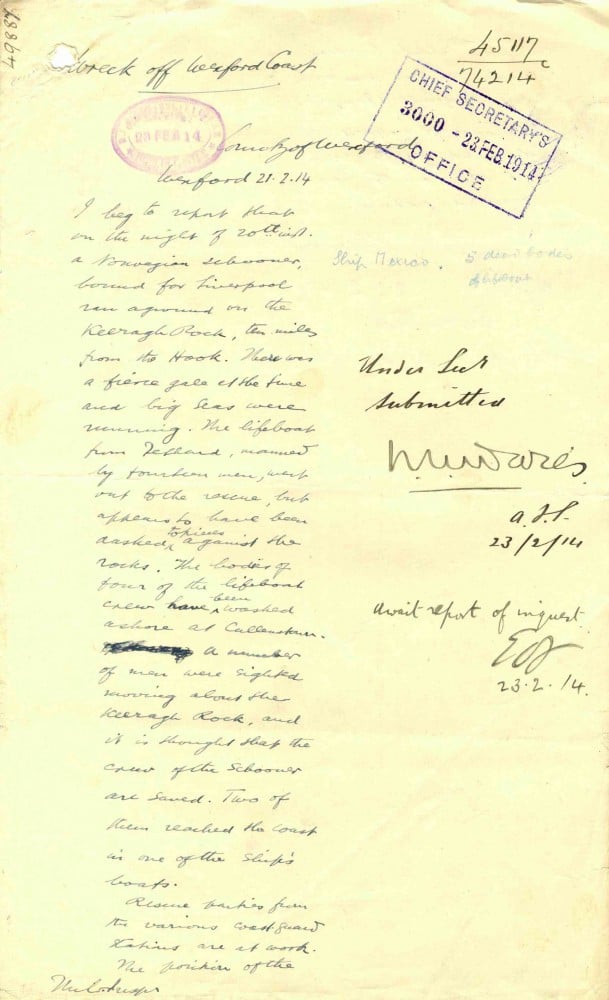 18897
Wreck off Wexford Coast
45117
74214
CHIEF SECRETARY'S
3000 - 23.FEB.1914
OFFICE
23 FEB 14
County of Wexford
Wexford 21.2.14
I beg to report that
on the night of 20th inst.
a Norwegian schooner,
bound for Liverpool
ran aground on the
Keeragh Rock, ten miles
from the Hook. There was
a fierce gale at the time
and big seas were
running. The lifeboat
from Fethard, manned
by fourteen men, went
out to the rescue, but
appears to have been
dashed to pieces against the
rocks. The bodies of
four of the lifeboat
crew have been washed
ashore at Cullenstown.
A number
of men were sighted
moving about the
Keeragh Rock, and
it is thought that the
crew of the Schooner
are saved. Two of
them reached the coast
in one of the Ship's
boats.
Rescue parties from
the various coast guard
stations are at work.
The position of the
Ship Mexico. 5 dead bodies
of lifeboat
Under Secy
Submitted
A.I.G.
23/2/14
Await report of inquest.
23.2.14.